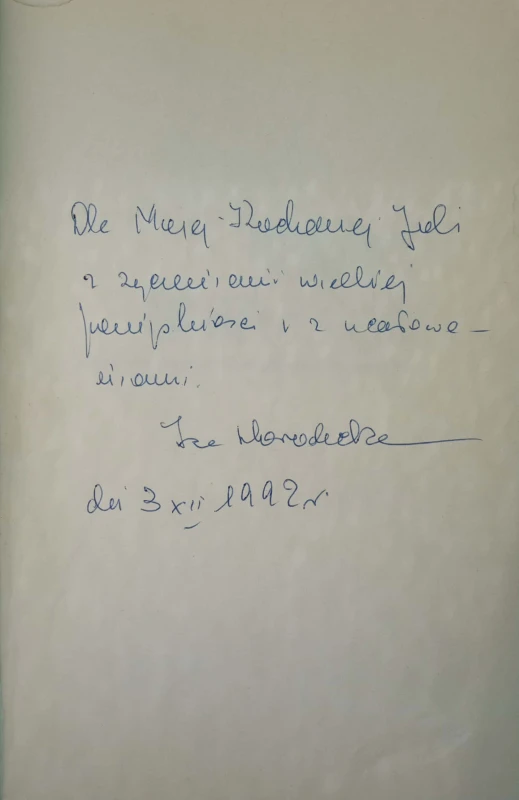 Dla Mojej Kochanej Juli
z życzeniami wielkiej
pomyślności i z ucałowa-
niami.
Iza
dn 3 XII 1992 r.